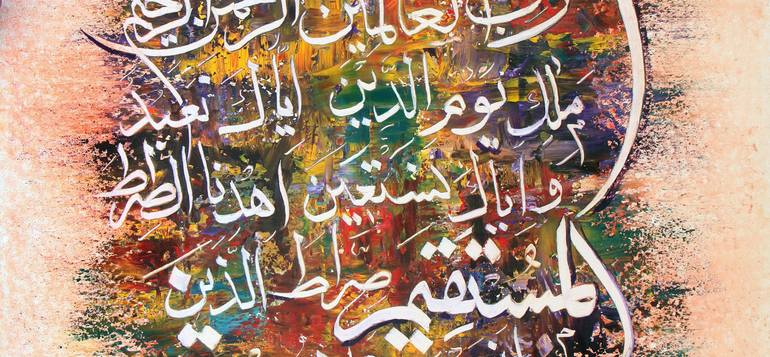 رب العالمين الرحمن الرحيم
ملك يوم الدين إياك نعبد
وإياك نستعين اهدنا الصراط
المستقيم صراط الذين